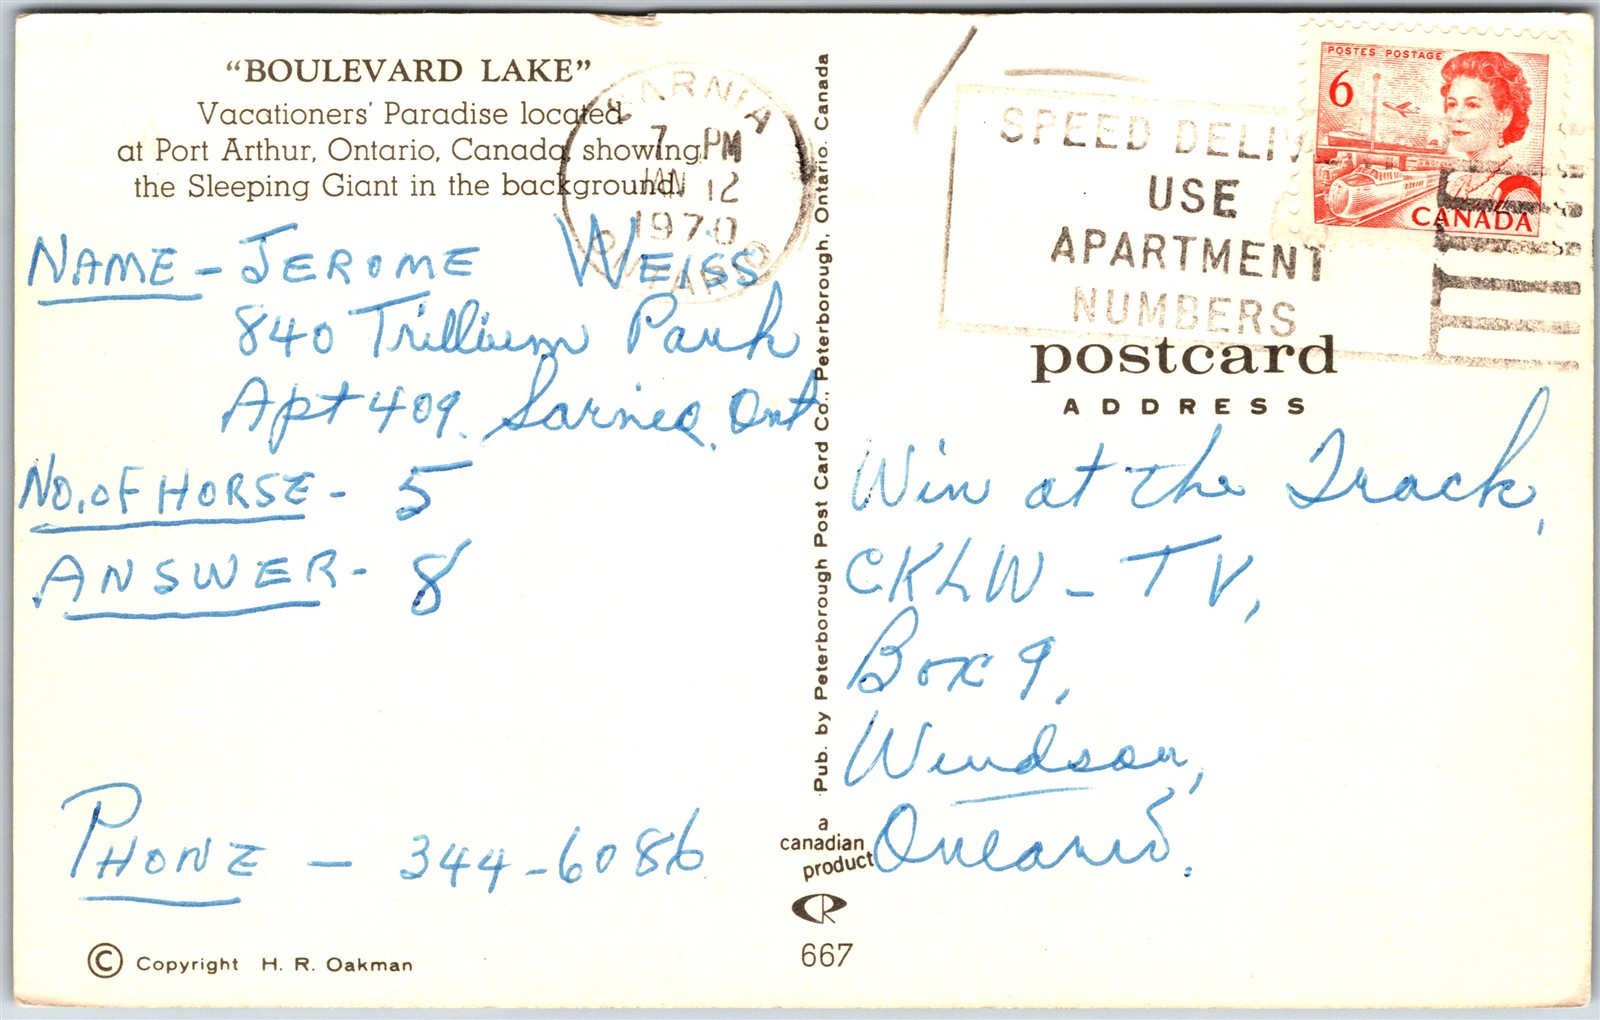 “BOULEVARD LAKE”
Vacationers’ Paradise located
at Port Arthur, Ontario, Canada, showing
the Sleeping Giant in the background.
SARNIA
7 PM
JAN 12
1970
ONTARIO
SPEED DELIV
USE
APARTMENT
NUMBERS
POSTES POSTAGE
6
CANADA
NAME - JEROME WEISS
840 Trillium Park
Apt 409. Sarnia, Ont
NO. OF HORSE - 5
ANSWER - 8
PHONE - 344-6086
© Copyright H. R. Oakman
Pub. by Peterborough Post Card Co., Peterborough, Ontario. Canada
a
canadian
product
CR
667
postcard
ADDRESS
Win at the Track,
CKLW - TV,
Box 9,
Windsor,
Ontario.